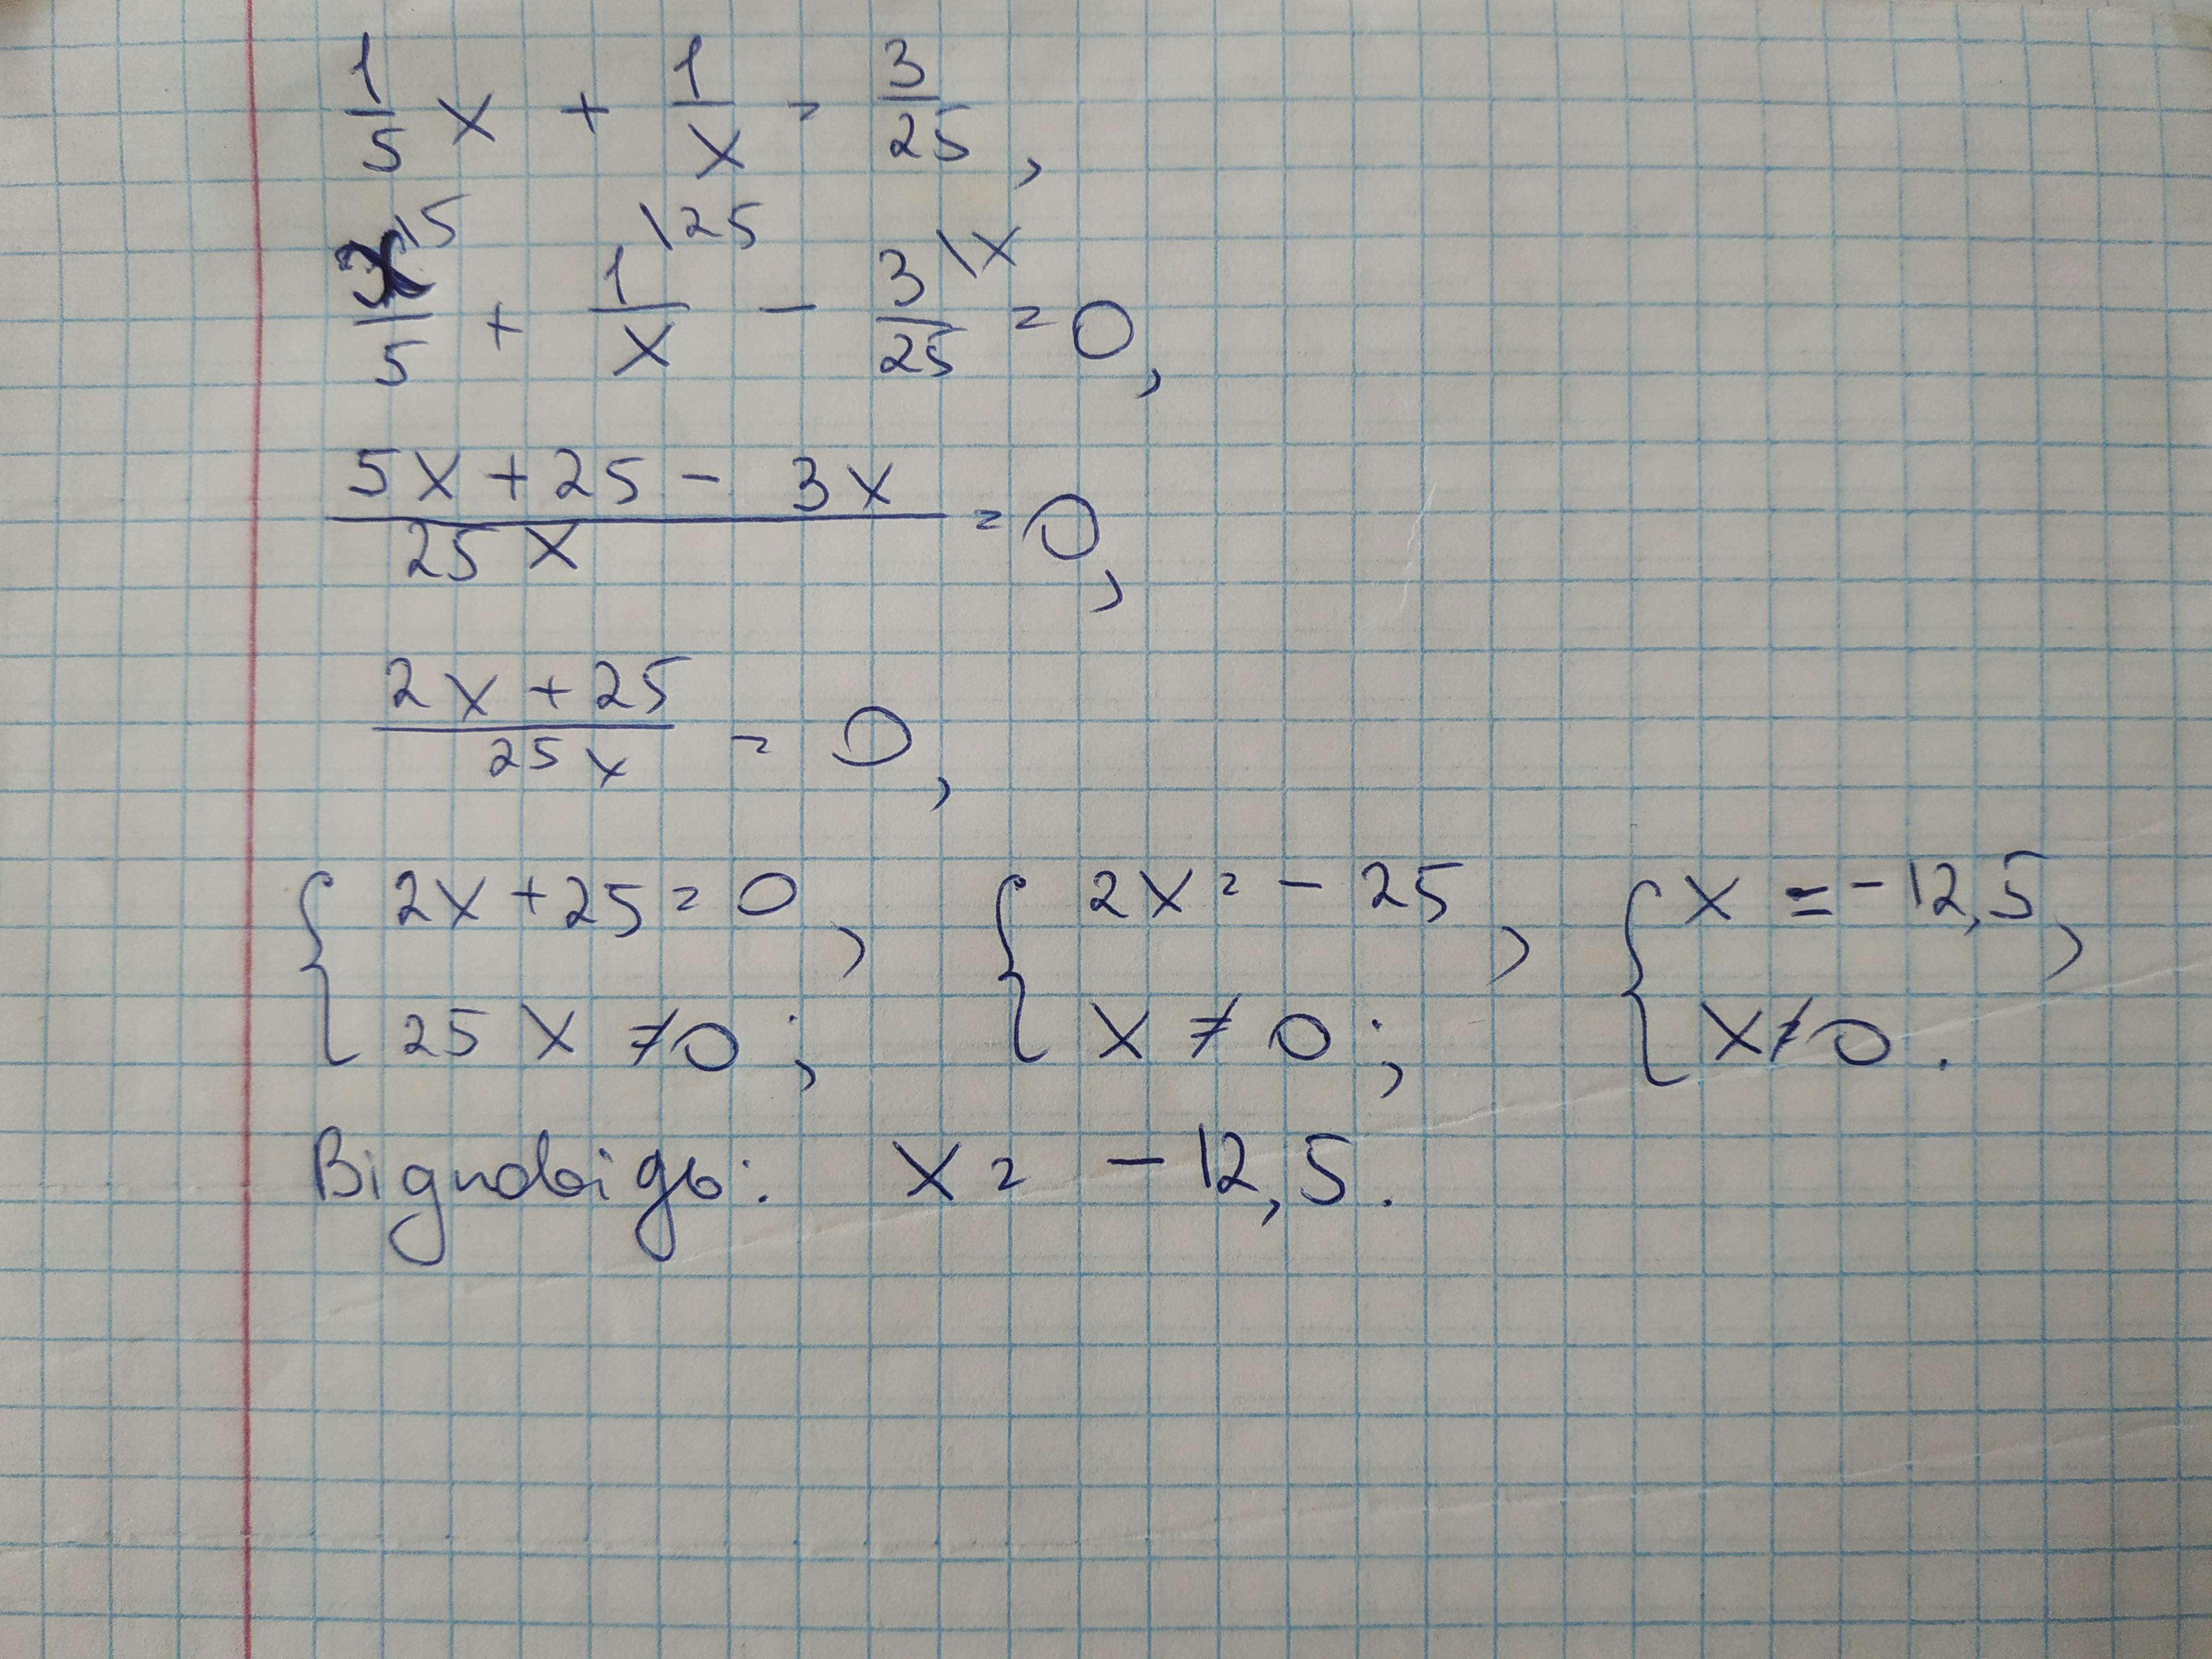 1/5 x + 1/x = 3/25,
x/5 \5 + 1/x \25 - 3/25 \x = 0,
(5x + 25 - 3x)/(25x) = 0,
(2x + 25)/(25x) = 0,
{ 2x + 25 = 0, 25x ≠ 0; { 2x = -25, x ≠ 0; { x = -12,5, x ≠ 0.
Відповідь: x = -12,5.